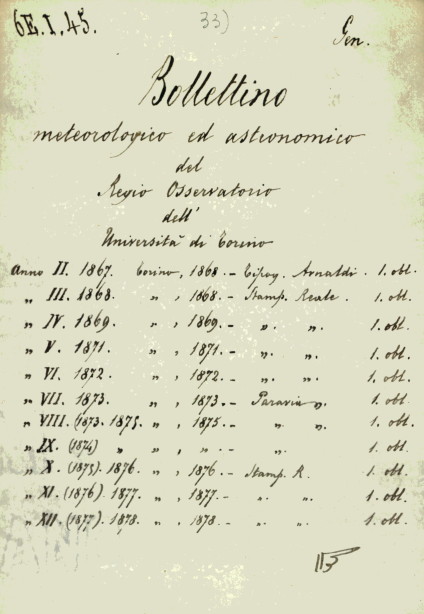 6E.I.45. 33) Gen.
Bollettino
meteorologico ed astronomico
del
Regio Osservatorio
dell'
Università di Torino
Anno II. 1867. Torino, 1868.- Tipog. Arnaldi. 1. obl.
„ III. 1868. „ , 1868.- Stamp. Reale. 1. obl.
„ IV. 1869. „ , 1869.- „ „. 1. obl.
„ V. 1871. „ , 1871.- „. „. 1. obl.
„ VI. 1872. „ , 1872.- „. „. 1. obl.
„ VII. 1873. „ , 1873.- Paravia „. 1. obl.
„ VIII. (1873. 1875. „ , 1875.- „ „. 1. obl.
„ IX. (1874) „ „ , „.- „ „. 1. obl.
„ X. (1875). 1876. „ , 1876.- Stamp. R. 1. obl.
„ XI. (1876) 1877. „ , 1877.- „. „. 1. obl.
„ XII. (1877). 1878. „ , 1878.- „. „. 1. obl.